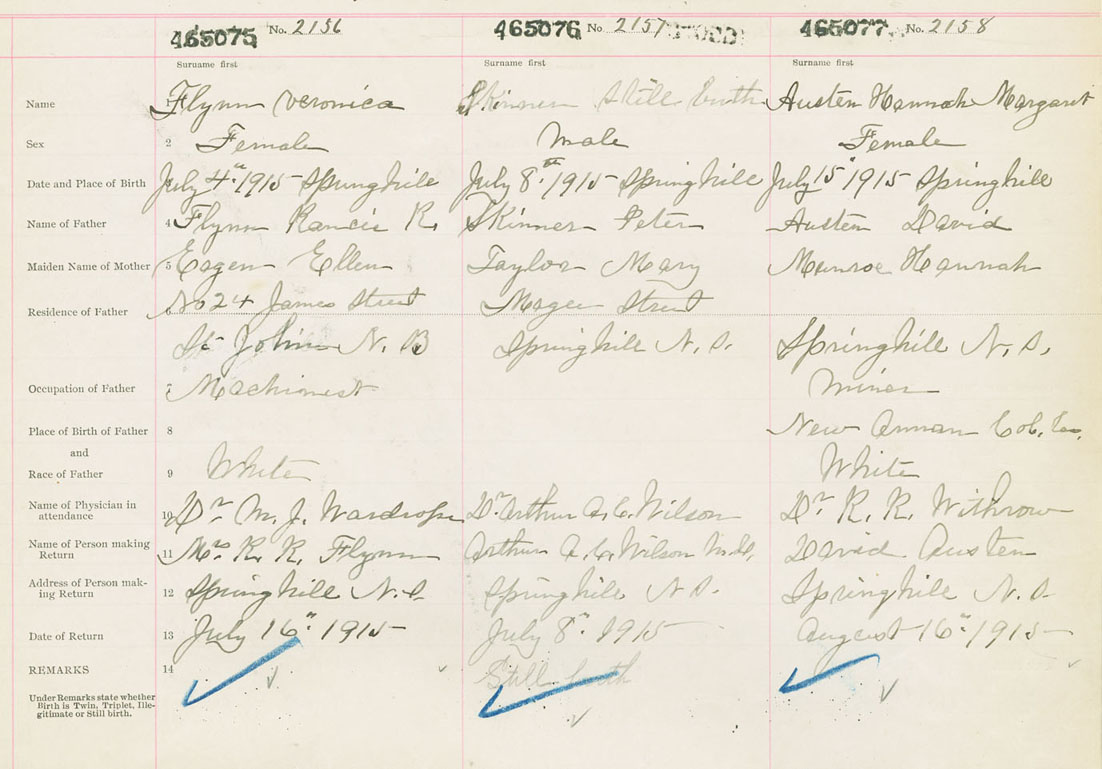 465075 No. 2156 465076 No 2157 465077 No. 2158
Surname first Surname first Surname first
Name 1 Flynn Veronica Skinner Still birth Austen Hannah Margaret
Sex 2 Female Male Female
Date and Place of Birth July 4" 1915 Springhile July 8th 1915 Springhile July 15" 1915 Springhile
Name of Father 4 Flynn Rancis R. Skinner Peter Austen David
Maiden Name of Mother 5 Eagen Ellen Taylor Mary Munroe Hannah
No 24 James Street Magee Street
Residence of Father 6
St John N. B Springhile N. S. Springhile N. S.
Occupation of Father 7 Machionest Miner
Place of Birth of Father 8 New Annan Col. Co.
and
Race of Father 9 White White
Name of Physician in
attendance 10 Dr M. J. Wardrope Dr Arthur A. C. Wilson Dr R. R. Withrow
Name of Person making
Return 11 Mrs R. R. Flynn Arthur A. C. Wilson M.D. David Austen
Address of Person mak-
ing Return 12 Springhile N. S. Springhile N S. Springhile N. S
Date of Return 13 July 16" 1915 July 8" 1915 August 16" 1915
REMARKS 14 Still birth
Under Remarks state whether
Birth is Twin, Triplet, Ille-
gitimate or Still birth.